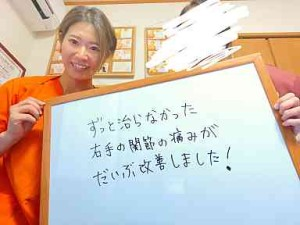 ずっと治らなかった
右手の関節の痛みが
だいぶ改善しました!